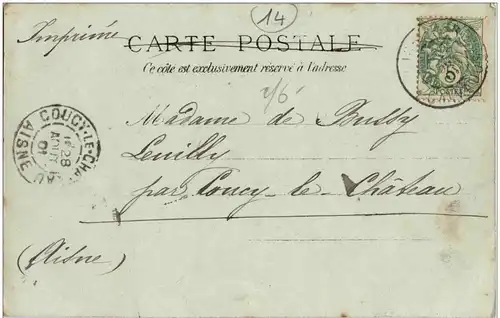 14
Imprimé
CARTE POSTALE
Ce côté est exclusivement réservé à l'adresse
Madame de Bussy
Leuilly
par Coucy-le-Château
(Aisne)
COUCY-LE-CHATEAU
28
AOUT
01
AISNE
5